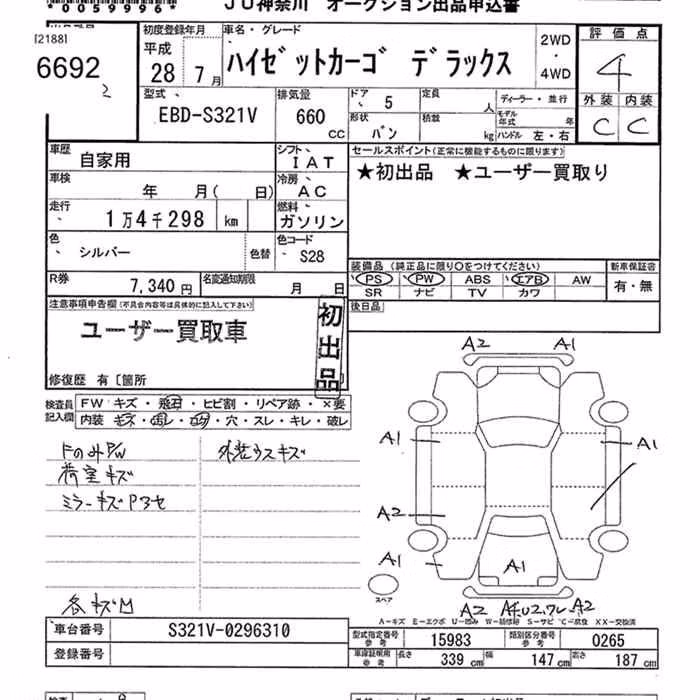 *0059996*
JU神奈川 オークション出品申込書
[2188]
6692
2
初度登録年月
平成
28 年 7 月
車名・グレード
ハイゼットカーゴ デラックス
2WD
・
4WD
評価点
4
外装 内装
C C
型式
EBD-S321V
排気量
660
CC
ドア 5
定員 人
形状 バン
積載 kg
ディーラー・並行
モデル年式 年
ハンドル 左・右
車歴
自家用
シフト
IAT
車検
年 月( 日)
冷房
AC
走行
1万4千298 km
燃料
ガソリン
色
シルバー
色替
色コード
S28
R券
7,340 円
名変通知期限
月 日
セールスポイント(正常に機能するものに限ります)
★初出品 ★ユーザー買取り
装備品(純正品に限り○をつけてください)
PS PW ABS エアB AW
SR ナビ TV カワ
新車保証書
有・無
後日品
注意事項申告欄(不具合内容等は具体的に記入して下さい)
ユーザー買取車
初出品
修復歴 有〔箇所
検査員記入欄
FW キズ・飛石・ヒビ割・リペア跡・×要
内装・キズ・汚レ・コゲ・穴・スレ・キレ・破レ
FのみPW
荷室キズ
ミラーキズ
外装ウスキズ
各キズ
A2 A1
A1 A1
A2
A1
A1
A2 A2
スペア
A-キズ E-エクボ U-凹み W-補修跡 S-サビ C-腐食 XX-交換済
車台番号
S321V-0296310
登録番号
型式指定番号 参考
15983
類別区分番号 参考
0265
車庫証明用 参考
長さ 339 cm
幅 147 cm
高さ 187 cm